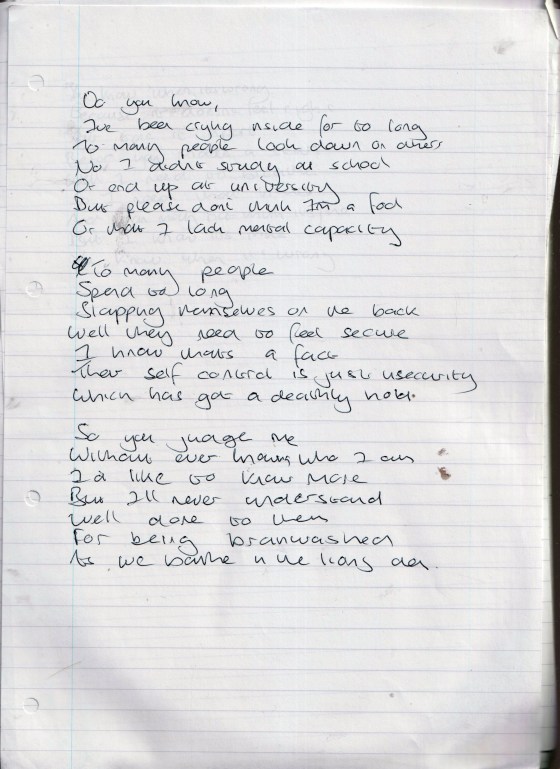 Do you know,
I've been crying inside for to long
To many people look down on others
No I didnt study at school
Or end up at university
But please dont think Im a fool
Or that I lack mental capacity
To many people
Spend to long
Slapping themselves on the back
Well they need to feel secure
I know thats a fact
Their self control is just insecurity
Which has got a deathly hold.
So you judge me
Without ever knowing who I am
I'd like to know more
But I'll never understand
Well done to them
For being brainwashed
As we bathe in the lions den.